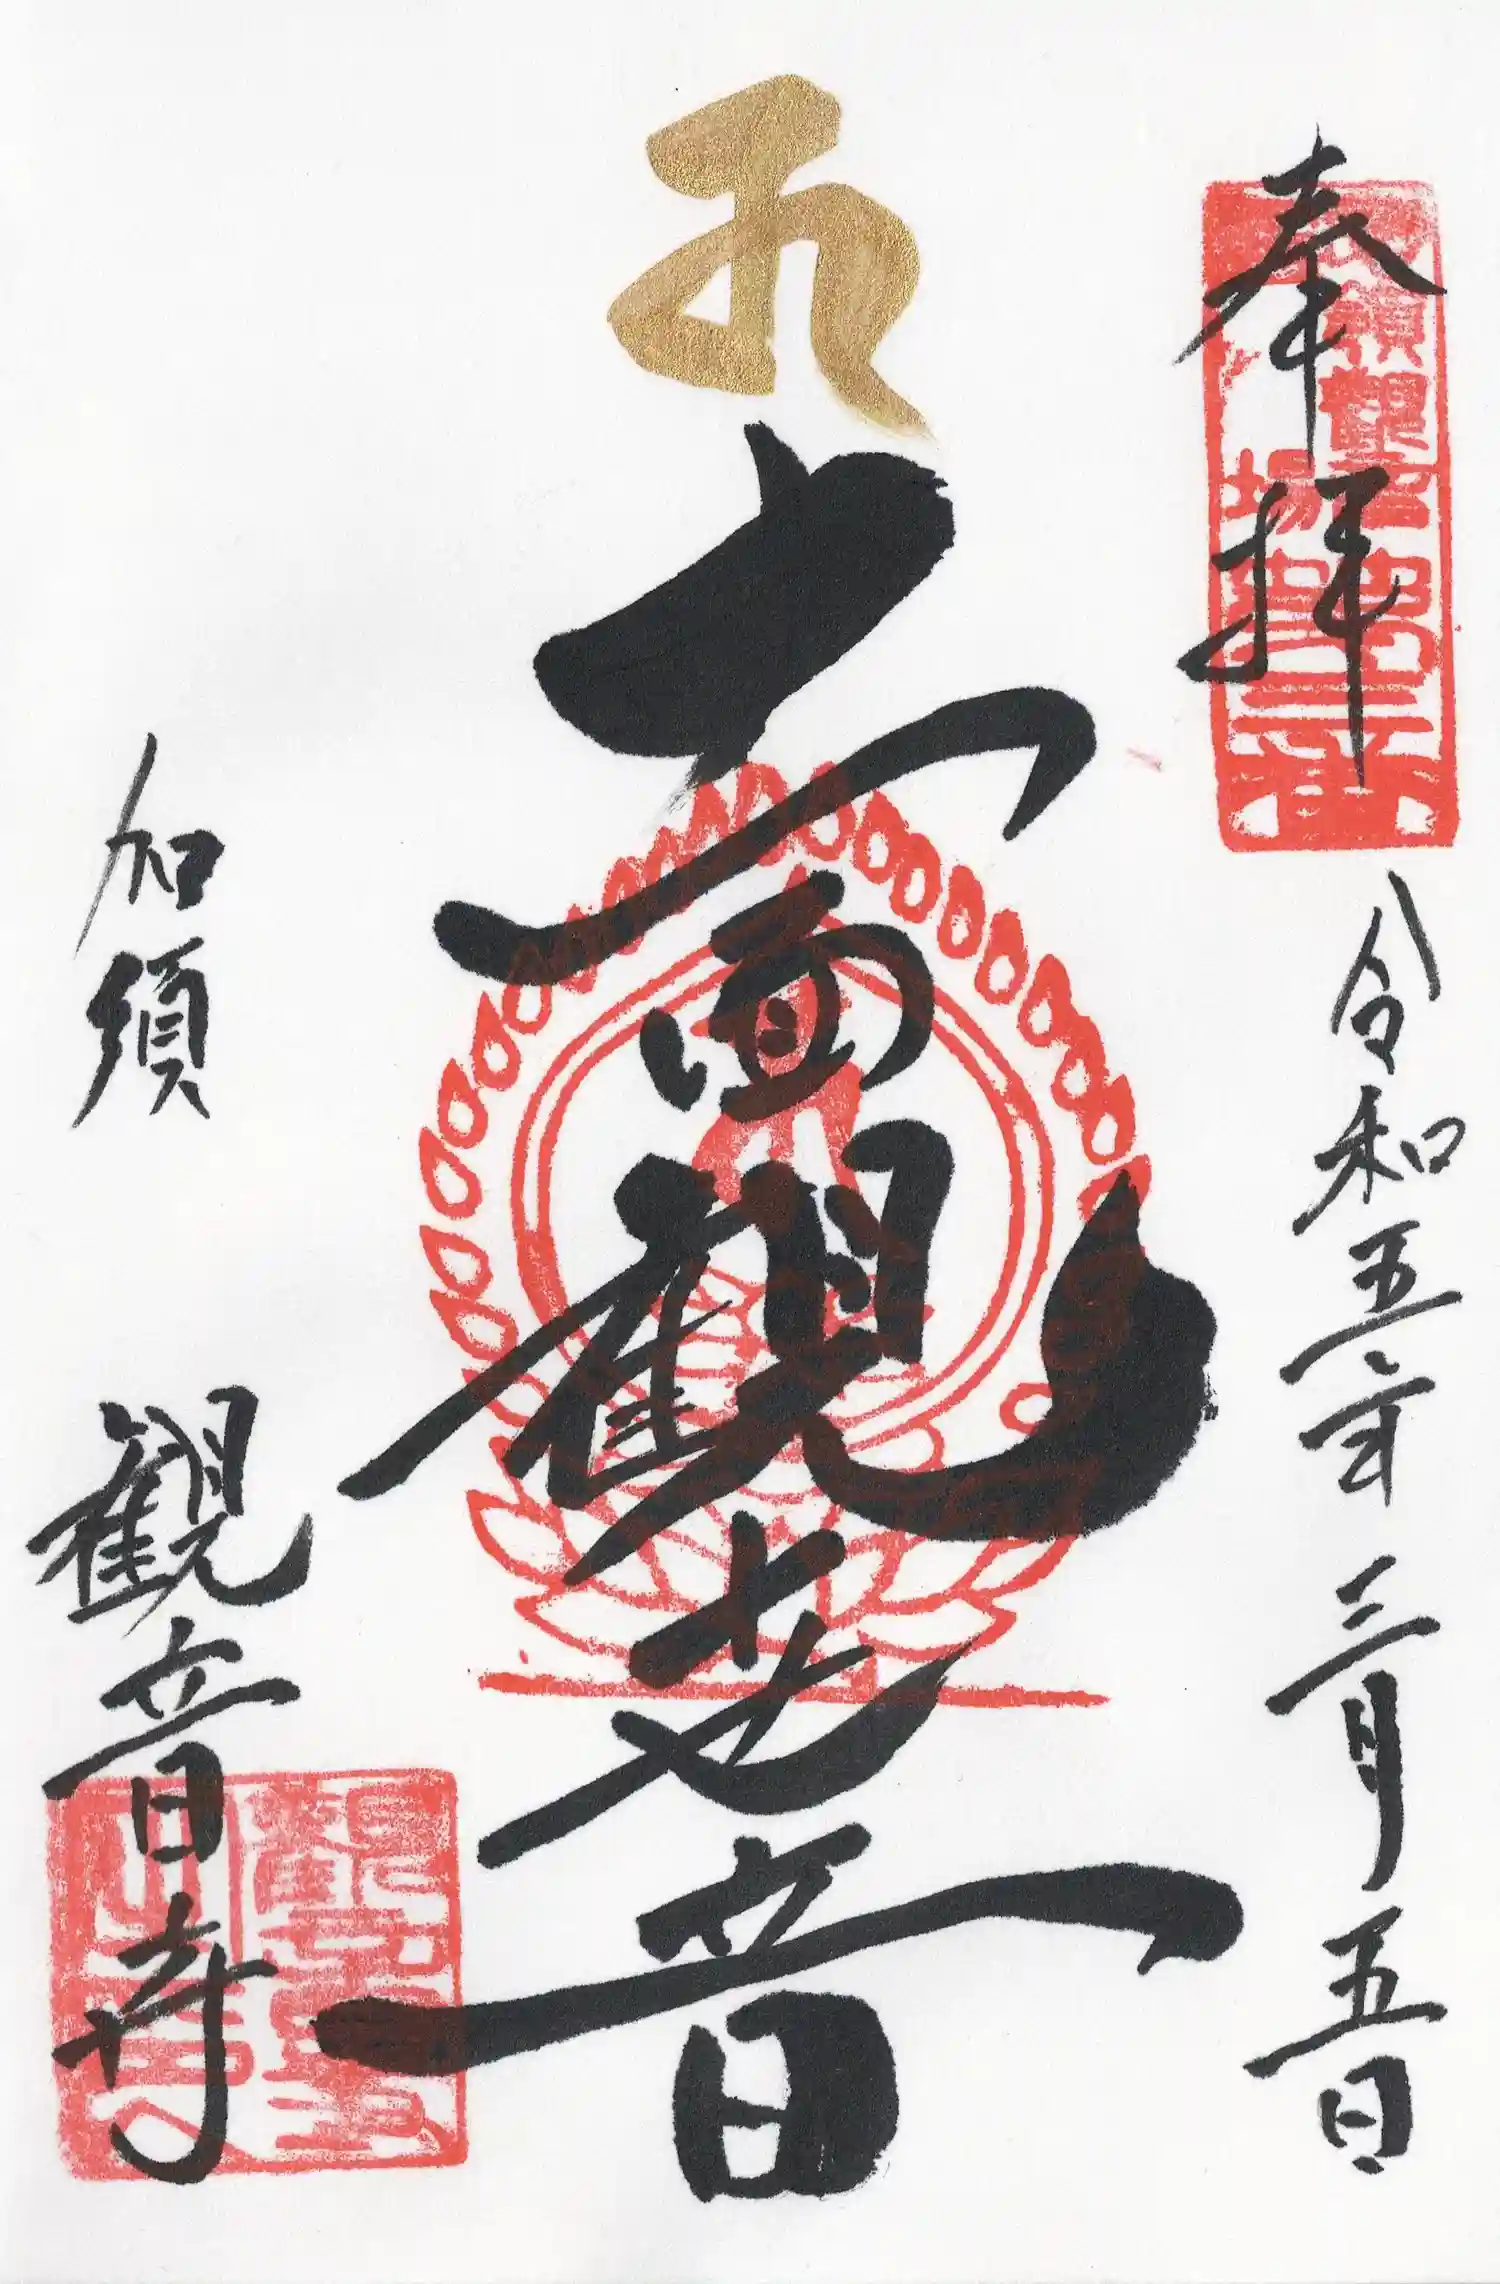 奉拝
令和五年三月五日
十一面観世音
加須
観音寺